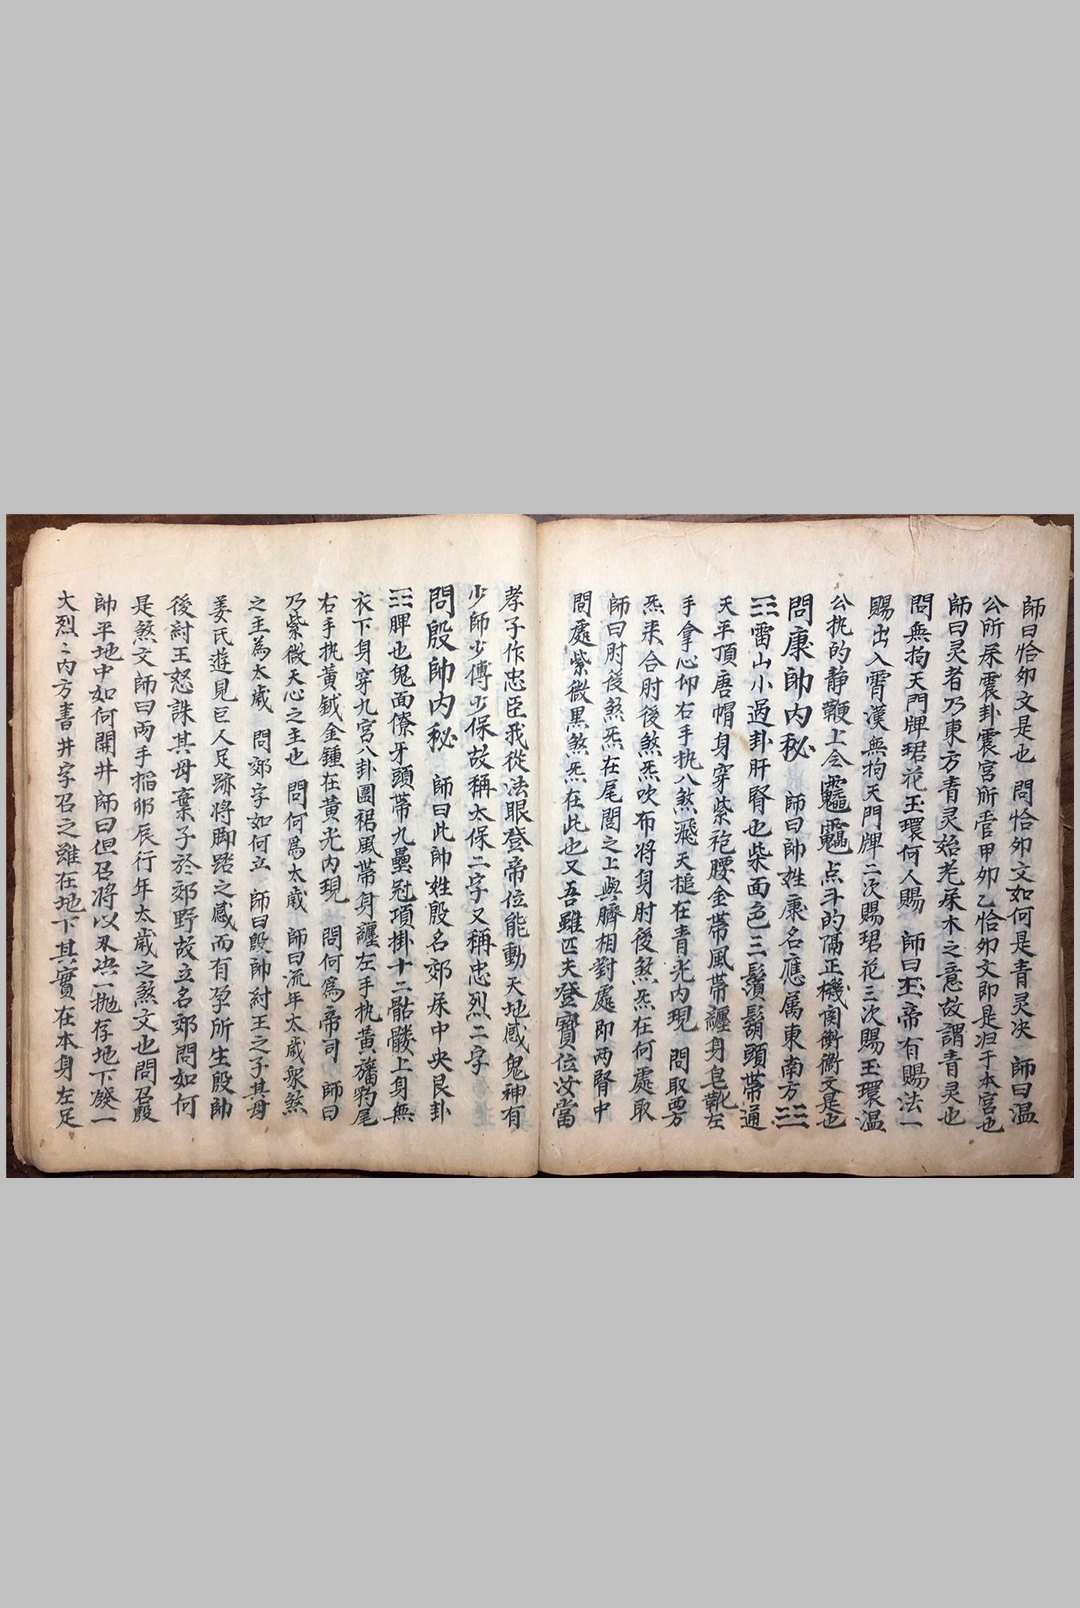 師曰恰夘文是也 問恰夘文如何是青灵决 師曰温
公所屎震卦震宮所管甲夘乙恰夘文即是归于本宮也
師曰灵者乃東方青灵始老屎木之意故謂青灵也
問無拘天門牌珺花玉環何人賜 師曰玉帝有賜法一
賜出入霄漢無拘天門牌二次賜珺花三次賜玉環温
公执的静鞭上令点斗的隅正機関衝衢文是也
問康帥内秘 師曰帥姓康名應属東南方☳☶
☳☶雷山小過卦肝腎也柴面色三鬚鬍頭帶通
天平頂唐帽身穿紫袍腰金帶風帶纏身皂靴左
手拿心仰右手执八煞飛天槌在青光内現 問取西方
炁来合肘後煞炁吹布将身肘後煞炁在何處取
師曰肘後煞炁在尾閭之上與臍相對處即两腎中
問處紫微黑煞炁在此也又吾雖匹夫登寳位汝當
孝子作忠臣我從法眼登帝位能動天地感鬼神有
少師少傅少保故稱太保二字又稱忠烈二字
問殷帥内秘 師曰此帥姓殷名郊屎中央艮卦
☶脾也鬼面僚牙頭帶九曡冠項掛十二骷髅上身無
衣下身穿九宮八卦圍裙風帶身纏左手执黃旛豹尾
右手执黃鉞金鍾在黃光内現 問何為帝司 師曰
乃紫微天心之主也 問何為太歲 師曰流年太歲衆煞
之主為太歲 問郊字如何立 師曰殷帥紂王之子其母
姜氏遊見巨人足跡将脚踏之感而有孕所生殷帥
後紂王怒誅其母棄子於郊野故立名郊問如何
是煞文師曰两手掐夘辰行年太歲之煞文也問召殷
帥平地中如何開井師曰但召将以决一抛存地下發一
大烈〻内方書井字召之雖在地下其實在本身左足